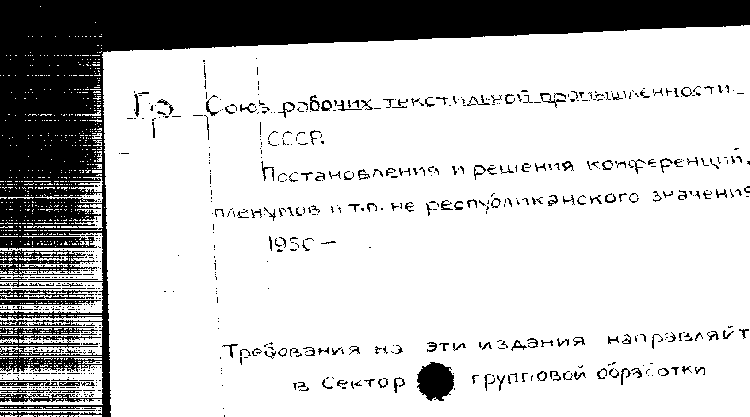 Гр Союз рабочих текстильной промышленности
СССР.
Постановления и решения конференций,
пленумов и т.п. не республиканского значения
1950 –
Требования на эти издания направляйт
в Сектор групповой обработки